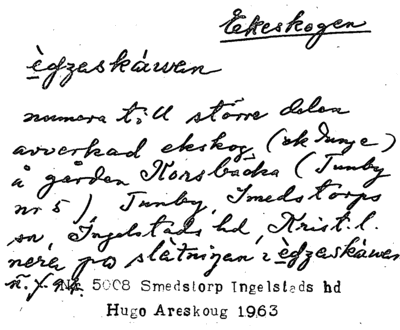 Ekeskogen
ègzaskáwen
numera till större delen
avverkad ekskog (ekdunge)
å gården Korsbäcka (Tunby
nr 5) Tunby, Smedstorps
sn, Ingelstads hd, Krist. l.
nerå pa slåtnijan, i ègzaskáwen
5008 Smedstorp Ingelstads hd
Hugo Areskoug 1963